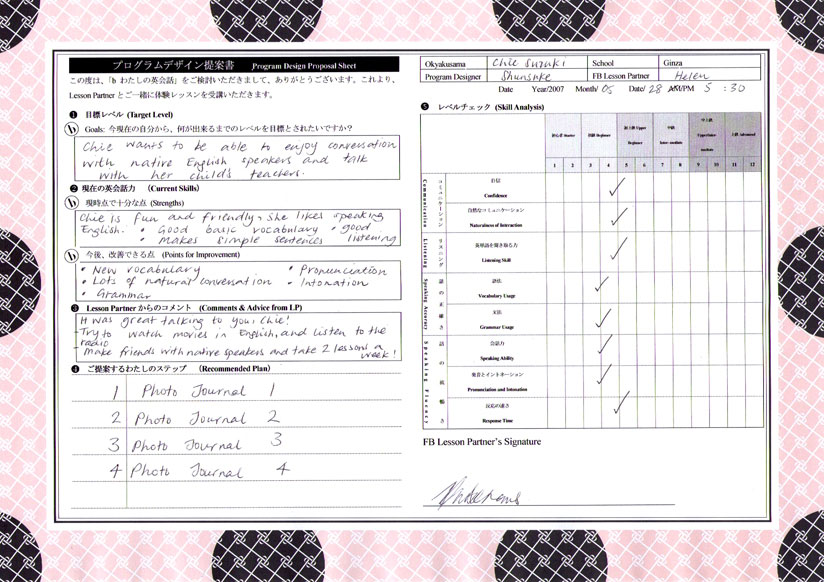 プログラムデザイン提案書 Program Design Proposal Sheet
この度は、「b わたしの英会話」をご検討いただきまして、ありがとうございます。これより、
Lesson Partner とご一緒に体験レッスンを受講いただきます。
❶ 目標レベル (Target Level)
b Goals: 今現在の自分から、何が出来るまでのレベルを目標とされたいですか？
Chie wants to be able to enjoy conversation
with native English speakers and talk
with her child's teachers.
❷ 現在の英会話力 (Current Skills)
b 現時点で十分な点 (Strengths)
Chie is fun and friendly. She likes speaking
English. • Good basic vocabulary • good
• Makes simple sentences listening
b 今後、改善できる点 (Points for Improvement)
• New vocabulary • Pronunciation
• Lots of natural conversation • Intonation
• Grammar
❸ Lesson Partner からのコメント (Comments & Advice from LP)
It was great talking to you, Chie!
- Try to watch movies in English, and listen to the
radio
- Make friends with native speakers and take 2 lessons a
week!
❹ ご提案するわたしのステップ (Recommended Plan)
1 Photo Journal 1
2 Photo Journal 2
3 Photo Journal 3
4 Photo Journal 4
Okyakusama Chie Suzuki School Ginza
Program Designer Shunsuke FB Lesson Partner Helen
Date Year/2007 Month/ 05 Date/ 28 AM/PM 5 : 30
❺ レベルチェック (Skill Analysis)
初心者 Starter 初級 Beginner 初上級 Upper Beginner 中級 Inter-mediate 中上級 Upper Inter-mediate 上級 Advanced
1 2 3 4 5 6 7 8 9 10 11 12
Communication コミュニケーション
自信
Confidence
自然なコミュニケーション
Naturalness of Interaction
Listening リスニング
英単語を聞き取る力
Listening Skill
Speaking Accuracy 話の正確さ
語法
Vocabulary Usage
文法
Grammar Usage
Speaking Fluency 話の流暢さ
会話力
Speaking Ability
発音とイントネーション
Pronunciation and Intonation
反応の速さ
Response Time
FB Lesson Partner's Signature